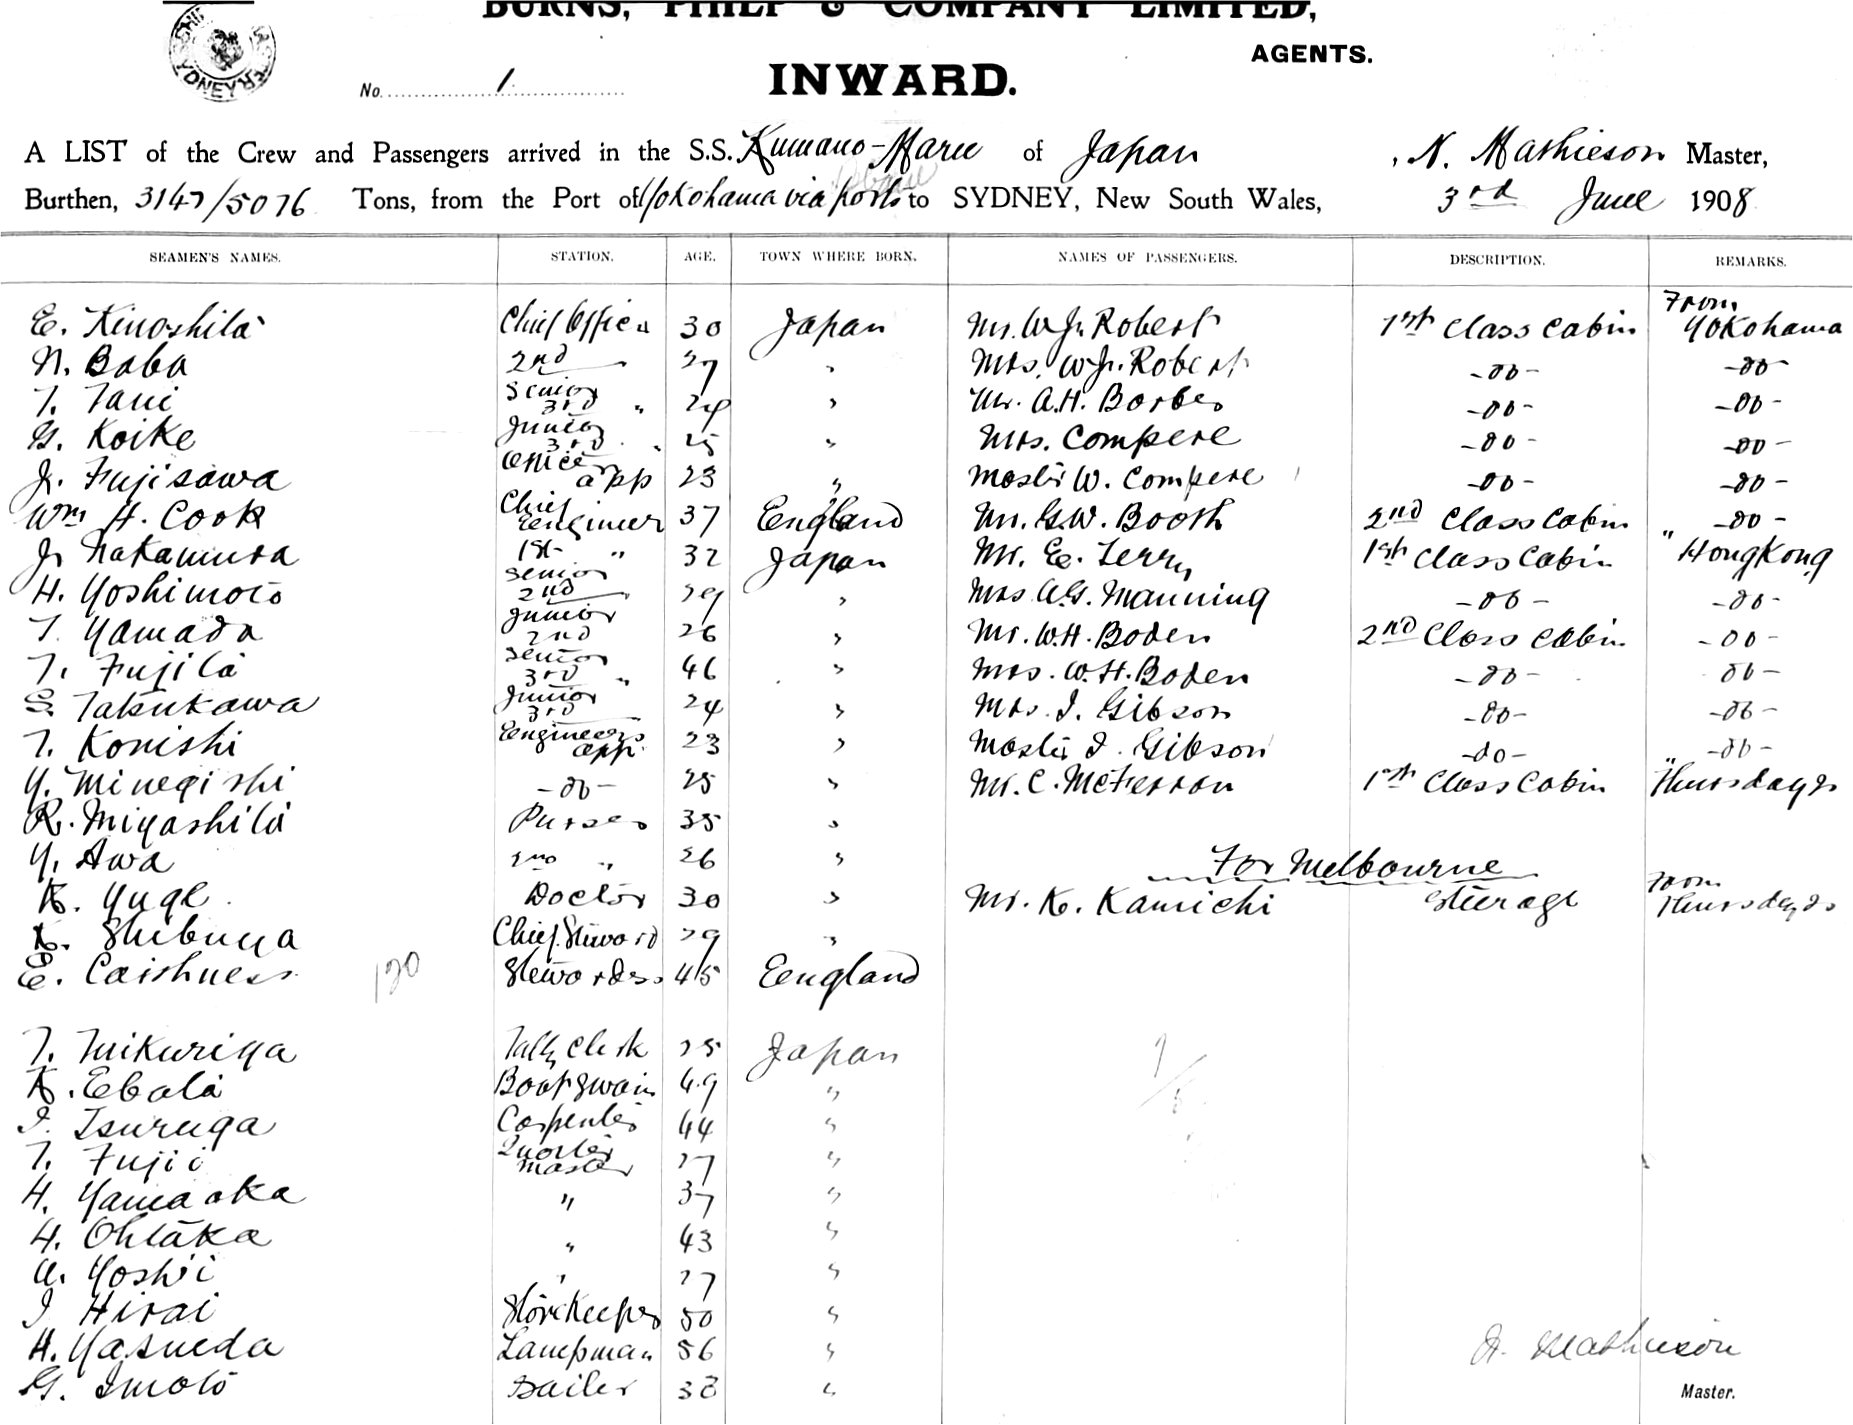 BURNS, PHILP & COMPANY LIMITED,
AGENTS.
INWARD.
No. 1
A LIST of the Crew and Passengers arrived in the S.S. Kumano-Maru of Japan , N. Mathieson Master,
Burthen, 3147/5076 Tons, from the Port of Yokohama via ports to SYDNEY, New South Wales, 3rd June 1908
SEAMEN'S NAMES. STATION. AGE. TOWN WHERE BORN. NAMES OF PASSENGERS. DESCRIPTION. REMARKS.
From
E. Kinoshita Chief Officer 30 Japan Mr. W. J. Robert 1st Class Cabin Yokohama
N. Baba 2nd " 27 " Mrs. W. J. Robert -do- -do-
T. Tani Senior 3rd " 24 " Mr. A.H. Barber -do- -do-
G. Koike Junior 3rd " 25 " Mrs. Compere -do- -do-
J. Fujisawa Office app 23 " Master W. Compere -do- -do-
Wm H. Cook Chief Eengineer 37 Eengland Mr. G.W. Booth 2nd Class Cabin -do-
J. Nakamura 1st " 32 Japan Mr. E. Terry 1st Class Cabin " HongKong
H. Yoshimoto Senior 2nd " 29 " Mrs A.G. Manning -do- -do-
T. Yamada Junior 2nd 26 " Mr. W.H. Boden 2nd Class Cabin -do-
T. Fujita Senior 3rd " 46 " Mrs. W.H. Boden -do- -do-
S. Tatsukawa Junior 3rd 24 " Mrs. I. Gibson -do- -do-
T. Konishi Eengineers app. 23 " Master I. Gibson -do- -do-
Y. Minegishi -do- 25 " Mr. C. McFerran 1st Class Cabin " Thursday Is
R. Miyashita Purser 35 "
Y. Awa 2nd " 26 " For Melbourne
From
K. Yuge Doctor 30 " Mr. K. Kamichi Steerage Thursday Is
K. Shibuya Chief Steward 29 "
E. Caithness 120 Stewardess 45 Eengland
T. Mikuriya Tally Clerk 25 Japan
K. Ebata Boatswain 49 "
I. Tsuruga Carpenter 44 "
T. Fujii Quarter master 27 "
H. Yamaoka " 37 "
H. Ohtaka " 43 "
U. Yoshii " 27 "
I Hirai Storekeeper 50 "
H. Yasueda Lampman 56 "
N. Mathieson
G. Imoto Sailer 38 "
Master.